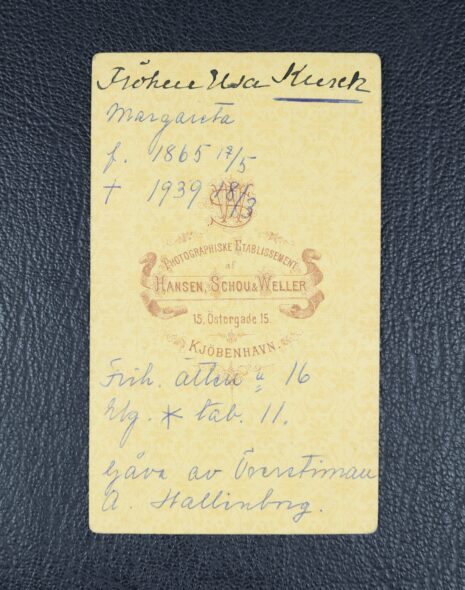 Fröken Elsa Kurck
Margareta
f. 1865 17/5
† 1939 18/3
PHOTOGRAPHISKE ETABLISSEMENT
af
HANSEN, SCHOU & WELLER
15, Östergade 15.
KJÖBENHAVN.
Frih. ätten 16
tab. 11.
Gåva av Överstinnan
A. Hallenborg.